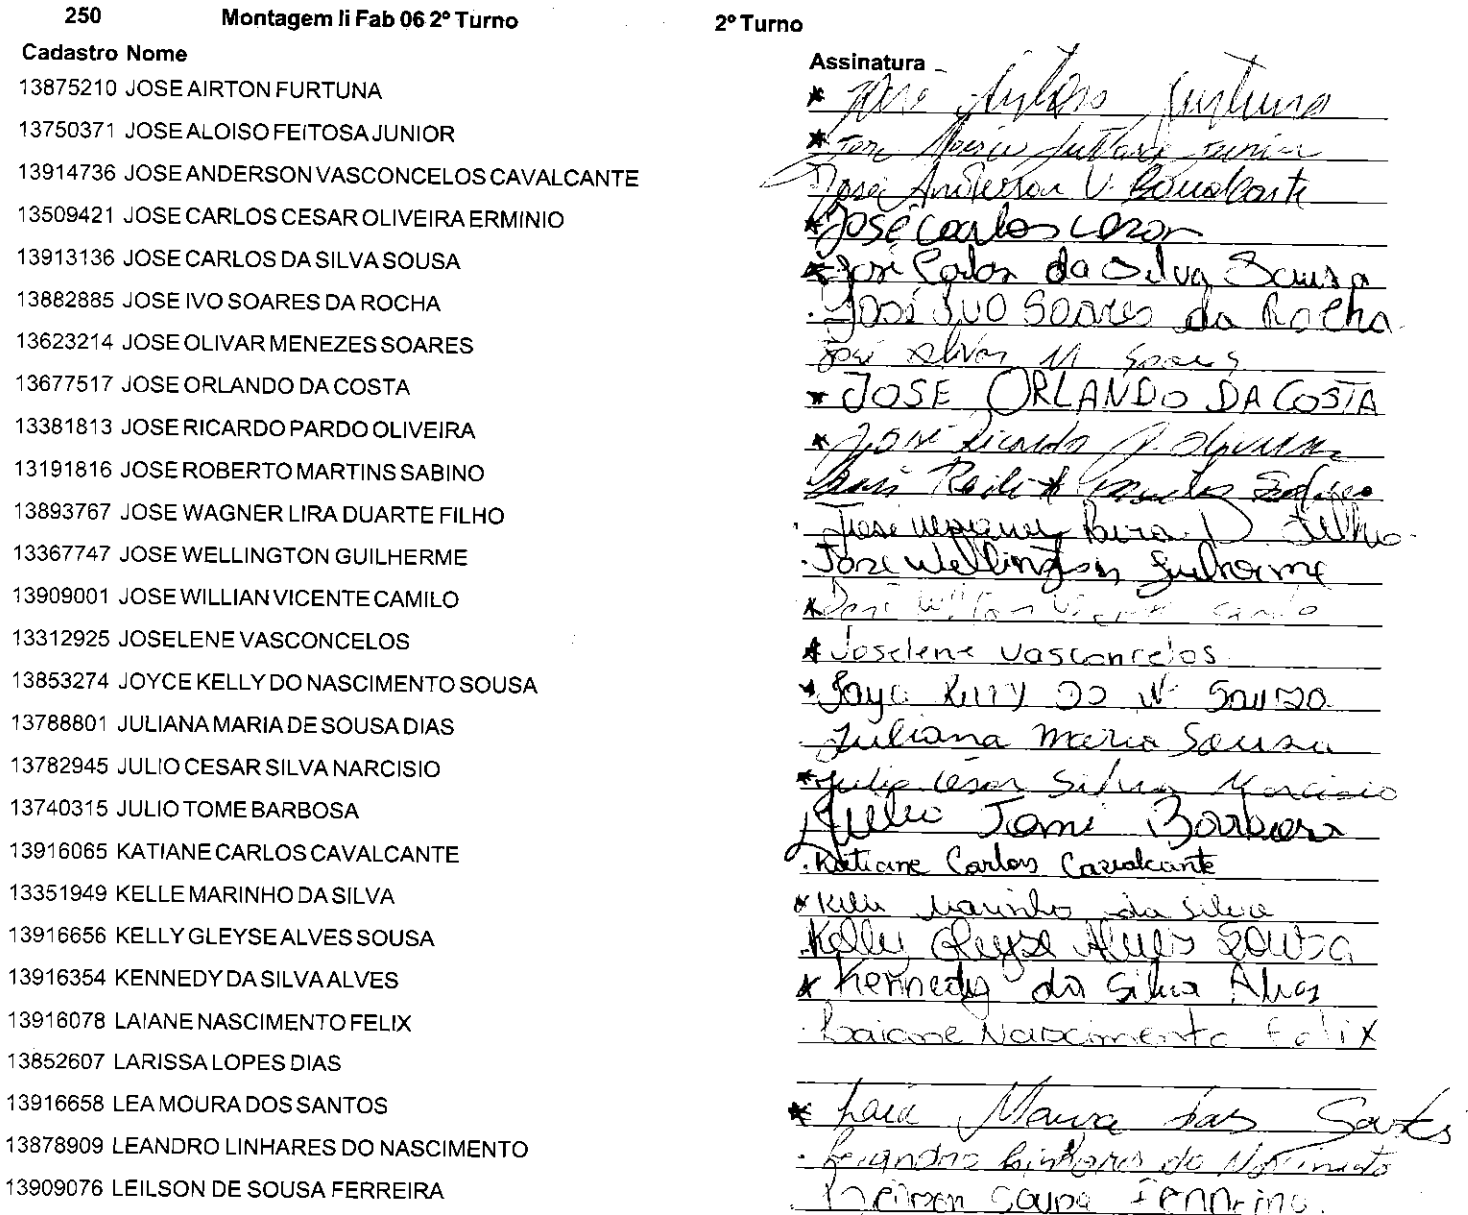 250 Montagem Ii Fab 06 2º Turno 2º Turno
Cadastro Nome Assinatura
13875210 JOSE AIRTON FURTUNA José Furtuna
13750371 JOSE ALOISO FEITOSA JUNIOR Junior
13914736 JOSE ANDERSON VASCONCELOS CAVALCANTE José Anderson V.
13509421 JOSE CARLOS CESAR OLIVEIRA ERMINIO José Carlos
13913136 JOSE CARLOS DA SILVA SOUSA José Carlos da Silva Sousa
13882885 JOSE IVO SOARES DA ROCHA José Ivo Soares da Rocha
13623214 JOSE OLIVAR MENEZES SOARES José Olivar M Soares
13677517 JOSE ORLANDO DA COSTA JOSE ORLANDO DA COSTA
13381813 JOSE RICARDO PARDO OLIVEIRA José Ricardo P. Oliveira
13191816 JOSE ROBERTO MARTINS SABINO
13893767 JOSE WAGNER LIRA DUARTE FILHO Jose Wagner Lira D. Filho
13367747 JOSE WELLINGTON GUILHERME José Wellington Guilherme
13909001 JOSE WILLIAN VICENTE CAMILO
13312925 JOSELENE VASCONCELOS Joselene Vasconcelos
13853274 JOYCE KELLY DO NASCIMENTO SOUSA Kelly Do N.
13788801 JULIANA MARIA DE SOUSA DIAS Juliana Maria Sousa
13782945 JULIO CESAR SILVA NARCISIO Julio César Silva Narcisio
13740315 JULIO TOME BARBOSA Julio Tomé Barbosa
13916065 KATIANE CARLOS CAVALCANTE Katiane Carlos Cavalcante
13351949 KELLE MARINHO DA SILVA Kelle Marinho da Silva
13916656 KELLY GLEYSE ALVES SOUSA Kelly Gleyse Alves Sousa
13916354 KENNEDY DA SILVA ALVES Kennedy da Silva Alves
13916078 LAIANE NASCIMENTO FELIX Laiane Nascimento Felix
13852607 LARISSA LOPES DIAS
13916658 LEA MOURA DOS SANTOS Moura dos Santos
13878909 LEANDRO LINHARES DO NASCIMENTO Leandro Linhares do Nascimento
13909076 LEILSON DE SOUSA FERREIRA Leilson Sousa Ferreira